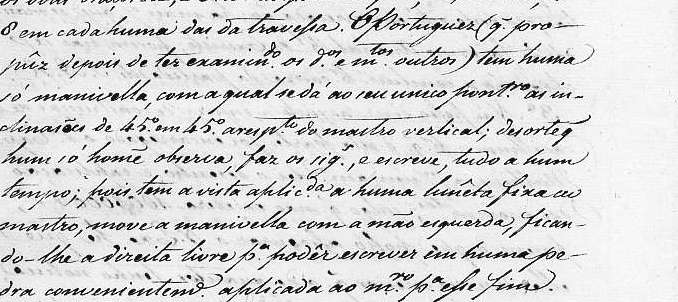 8 em cada huma das da travessa. O Portuguez (q. pro-
pûz depois de ter examindo. os dos. e mtos. outros) tem huma
só manivella, com a qual se dá ao seu unico pontro. as in-
clinasões de 45.º em 45.º a respto. do mastro vertical; de sorte q
hum só home observa, faz os sigs., e escreve, tudo a hum
tempo; pois tem a vista aplicda. a huma lunêta fixa ao
mastro, move a manivella com a mão esquerda, fican-
do-lhe a direita livre pa. podêr escrever em huma pe-
dra convenientemd. aplicada ao mro. pa. esse fim.